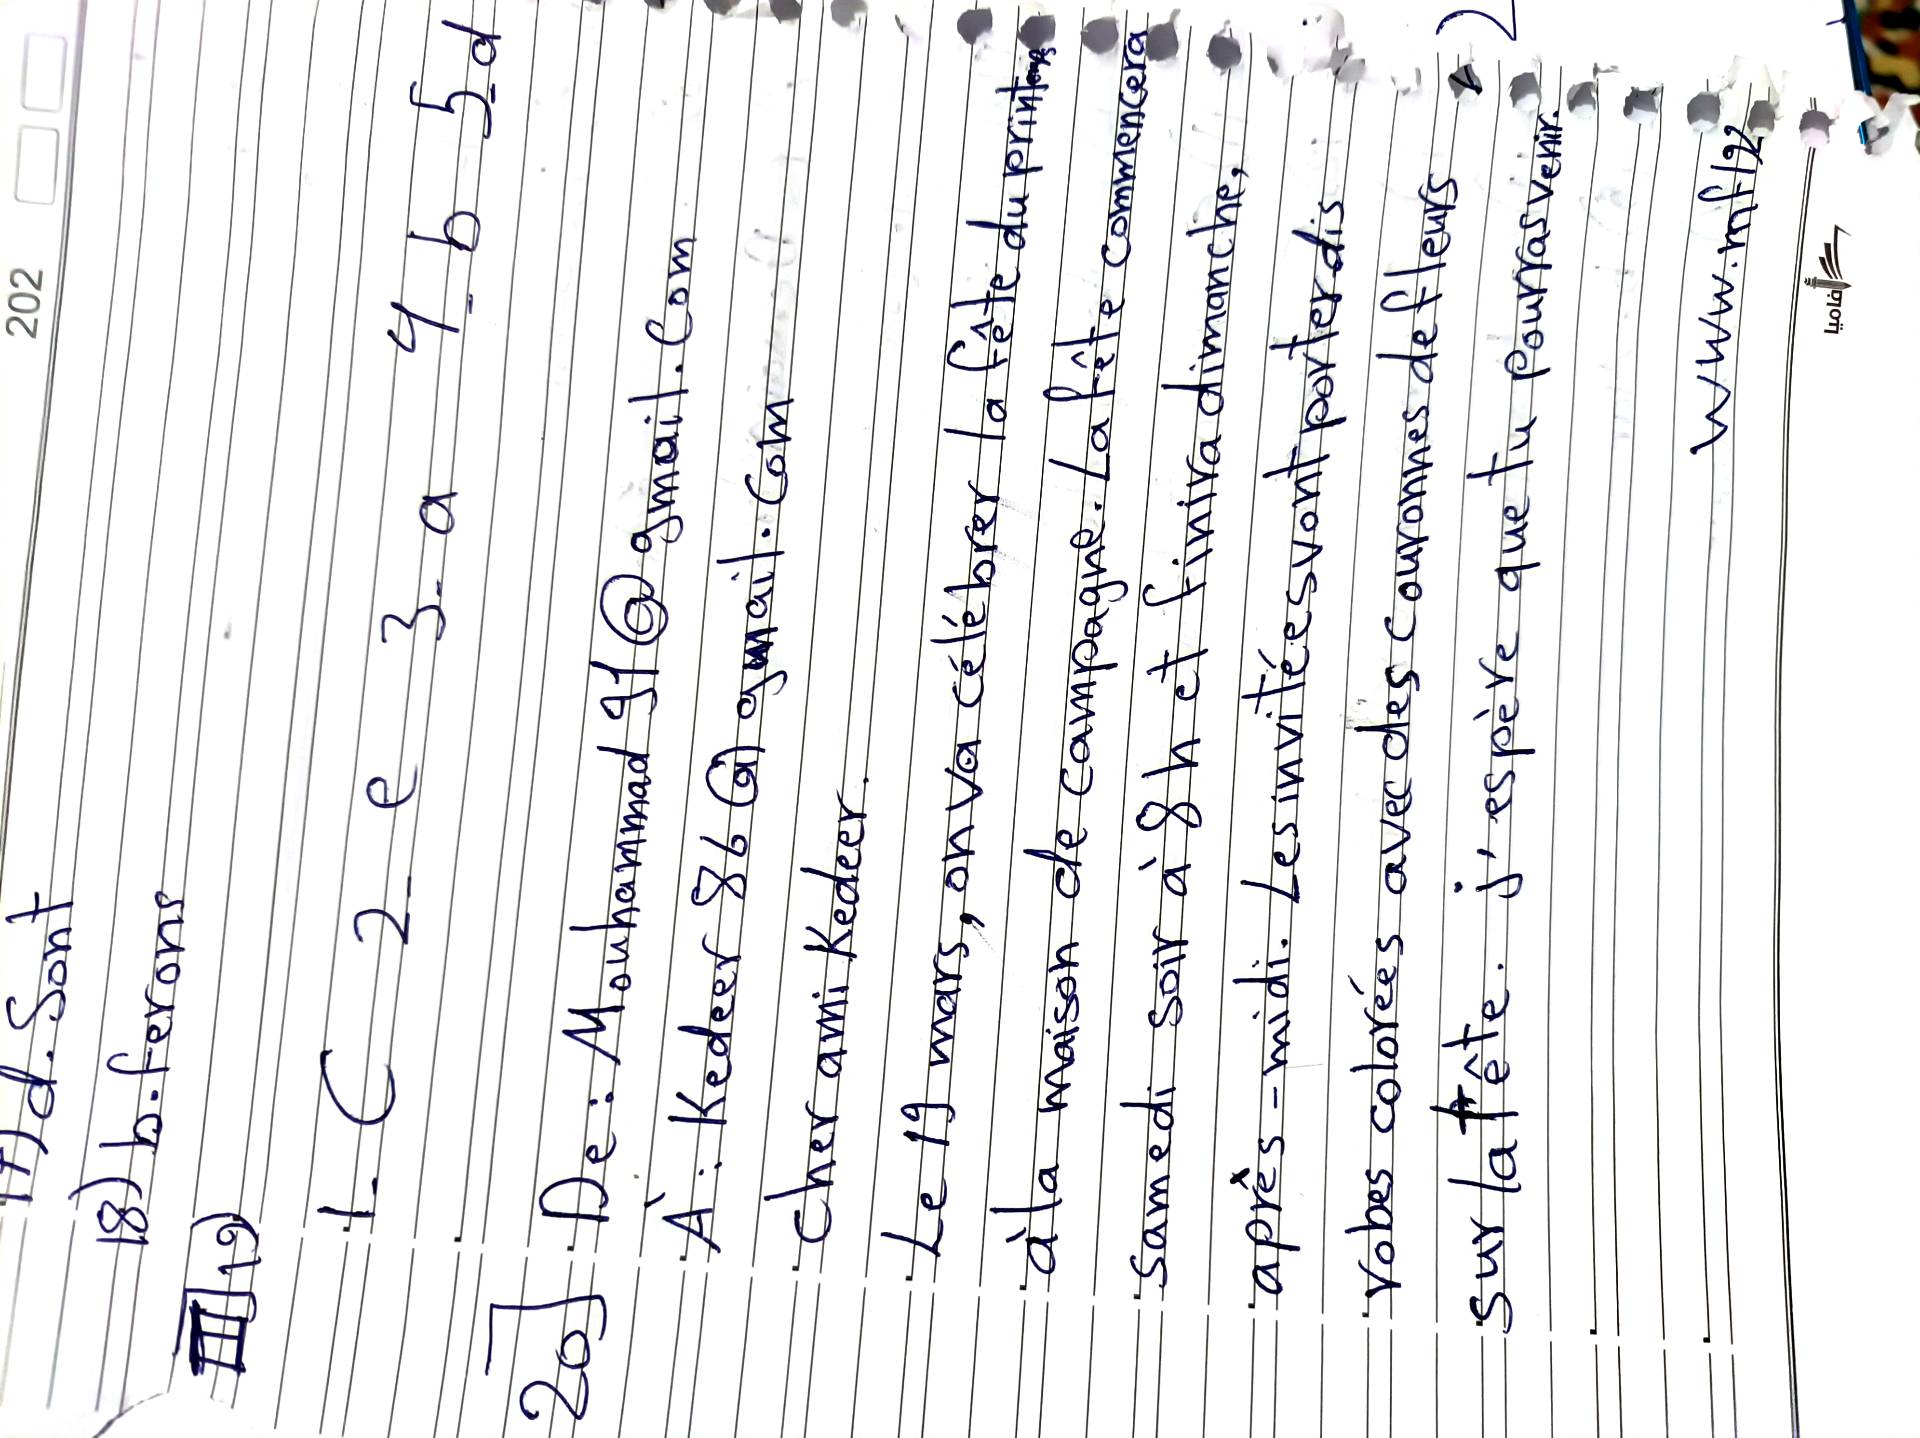 202
17) d. Sont
18) b. ferons
III 19)
1. C 2_ e 3_ a 4_ b 5_ d
20] De : Mouhammad 91@gmail.com
À : Kedeer 86@gmail.com
Cher ami Kedeer.
Le 19 mars, on va célébrer la fête du printemps
à la maison de campagne. La fête commencera
samedi soir à 8 h et finira dimanche,
après-midi. Les invités vont porter dis
robes colorées avec des couronnes de fleurs
sur la tête. j'espère que tu pourras venir.
www.mf19
افاميا